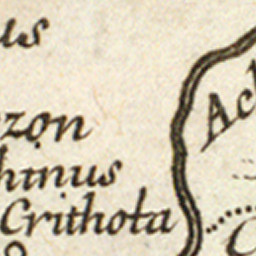 us
zon
hinus
Crithota
Ach